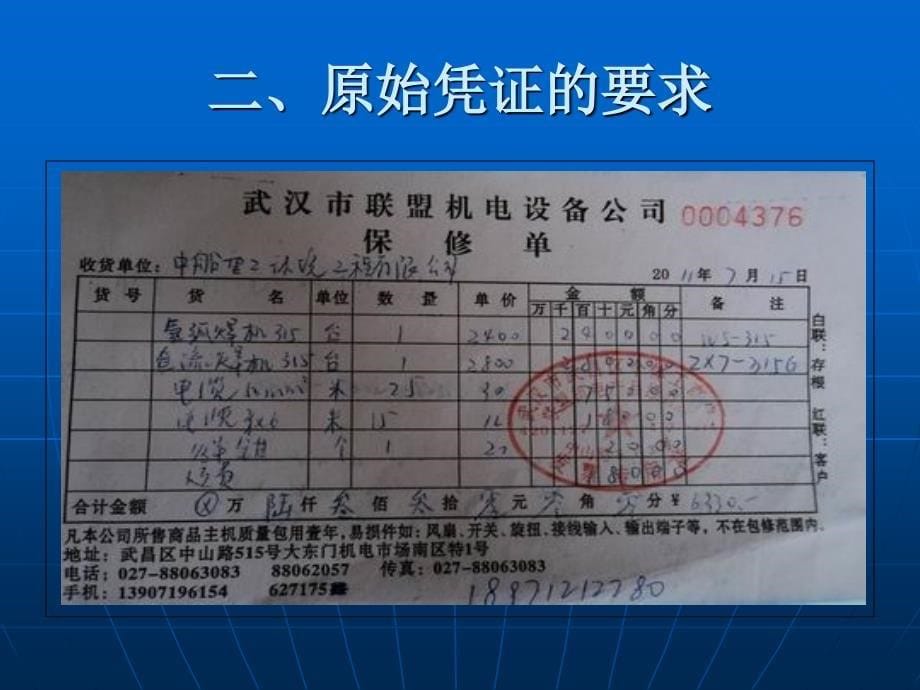 二、原始凭证的要求
武汉市联盟机电设备公司 0004376
保修单
收货单位：中船重工 工程有限公司 2011年7月15日
货号 货名 单位 数量 单价 金额 备注
万千百十元角分
氩弧焊机315 台 1 2400 240000 WS-315
直流焊机315 台 1 2800 280000 ZX7-315G
电缆 米 25 30 75000
米 15 12 18000
个 1 20 2000
运费 18000
合计金额 ⊗万陆仟叁佰叁拾零元零角零分¥6330.-
白联：存根 红联：客户
凡本公司所售商品主机质量包用壹年，易损件如：风扇、开关、旋扭、接线输入、输出端子等，不在包修范围内。
地址：武昌区中山路515号大东门机电市场南区特1号
电话：027-88063083 88062057 传真：027-88063083
手机：13907196154 627175
18971212780